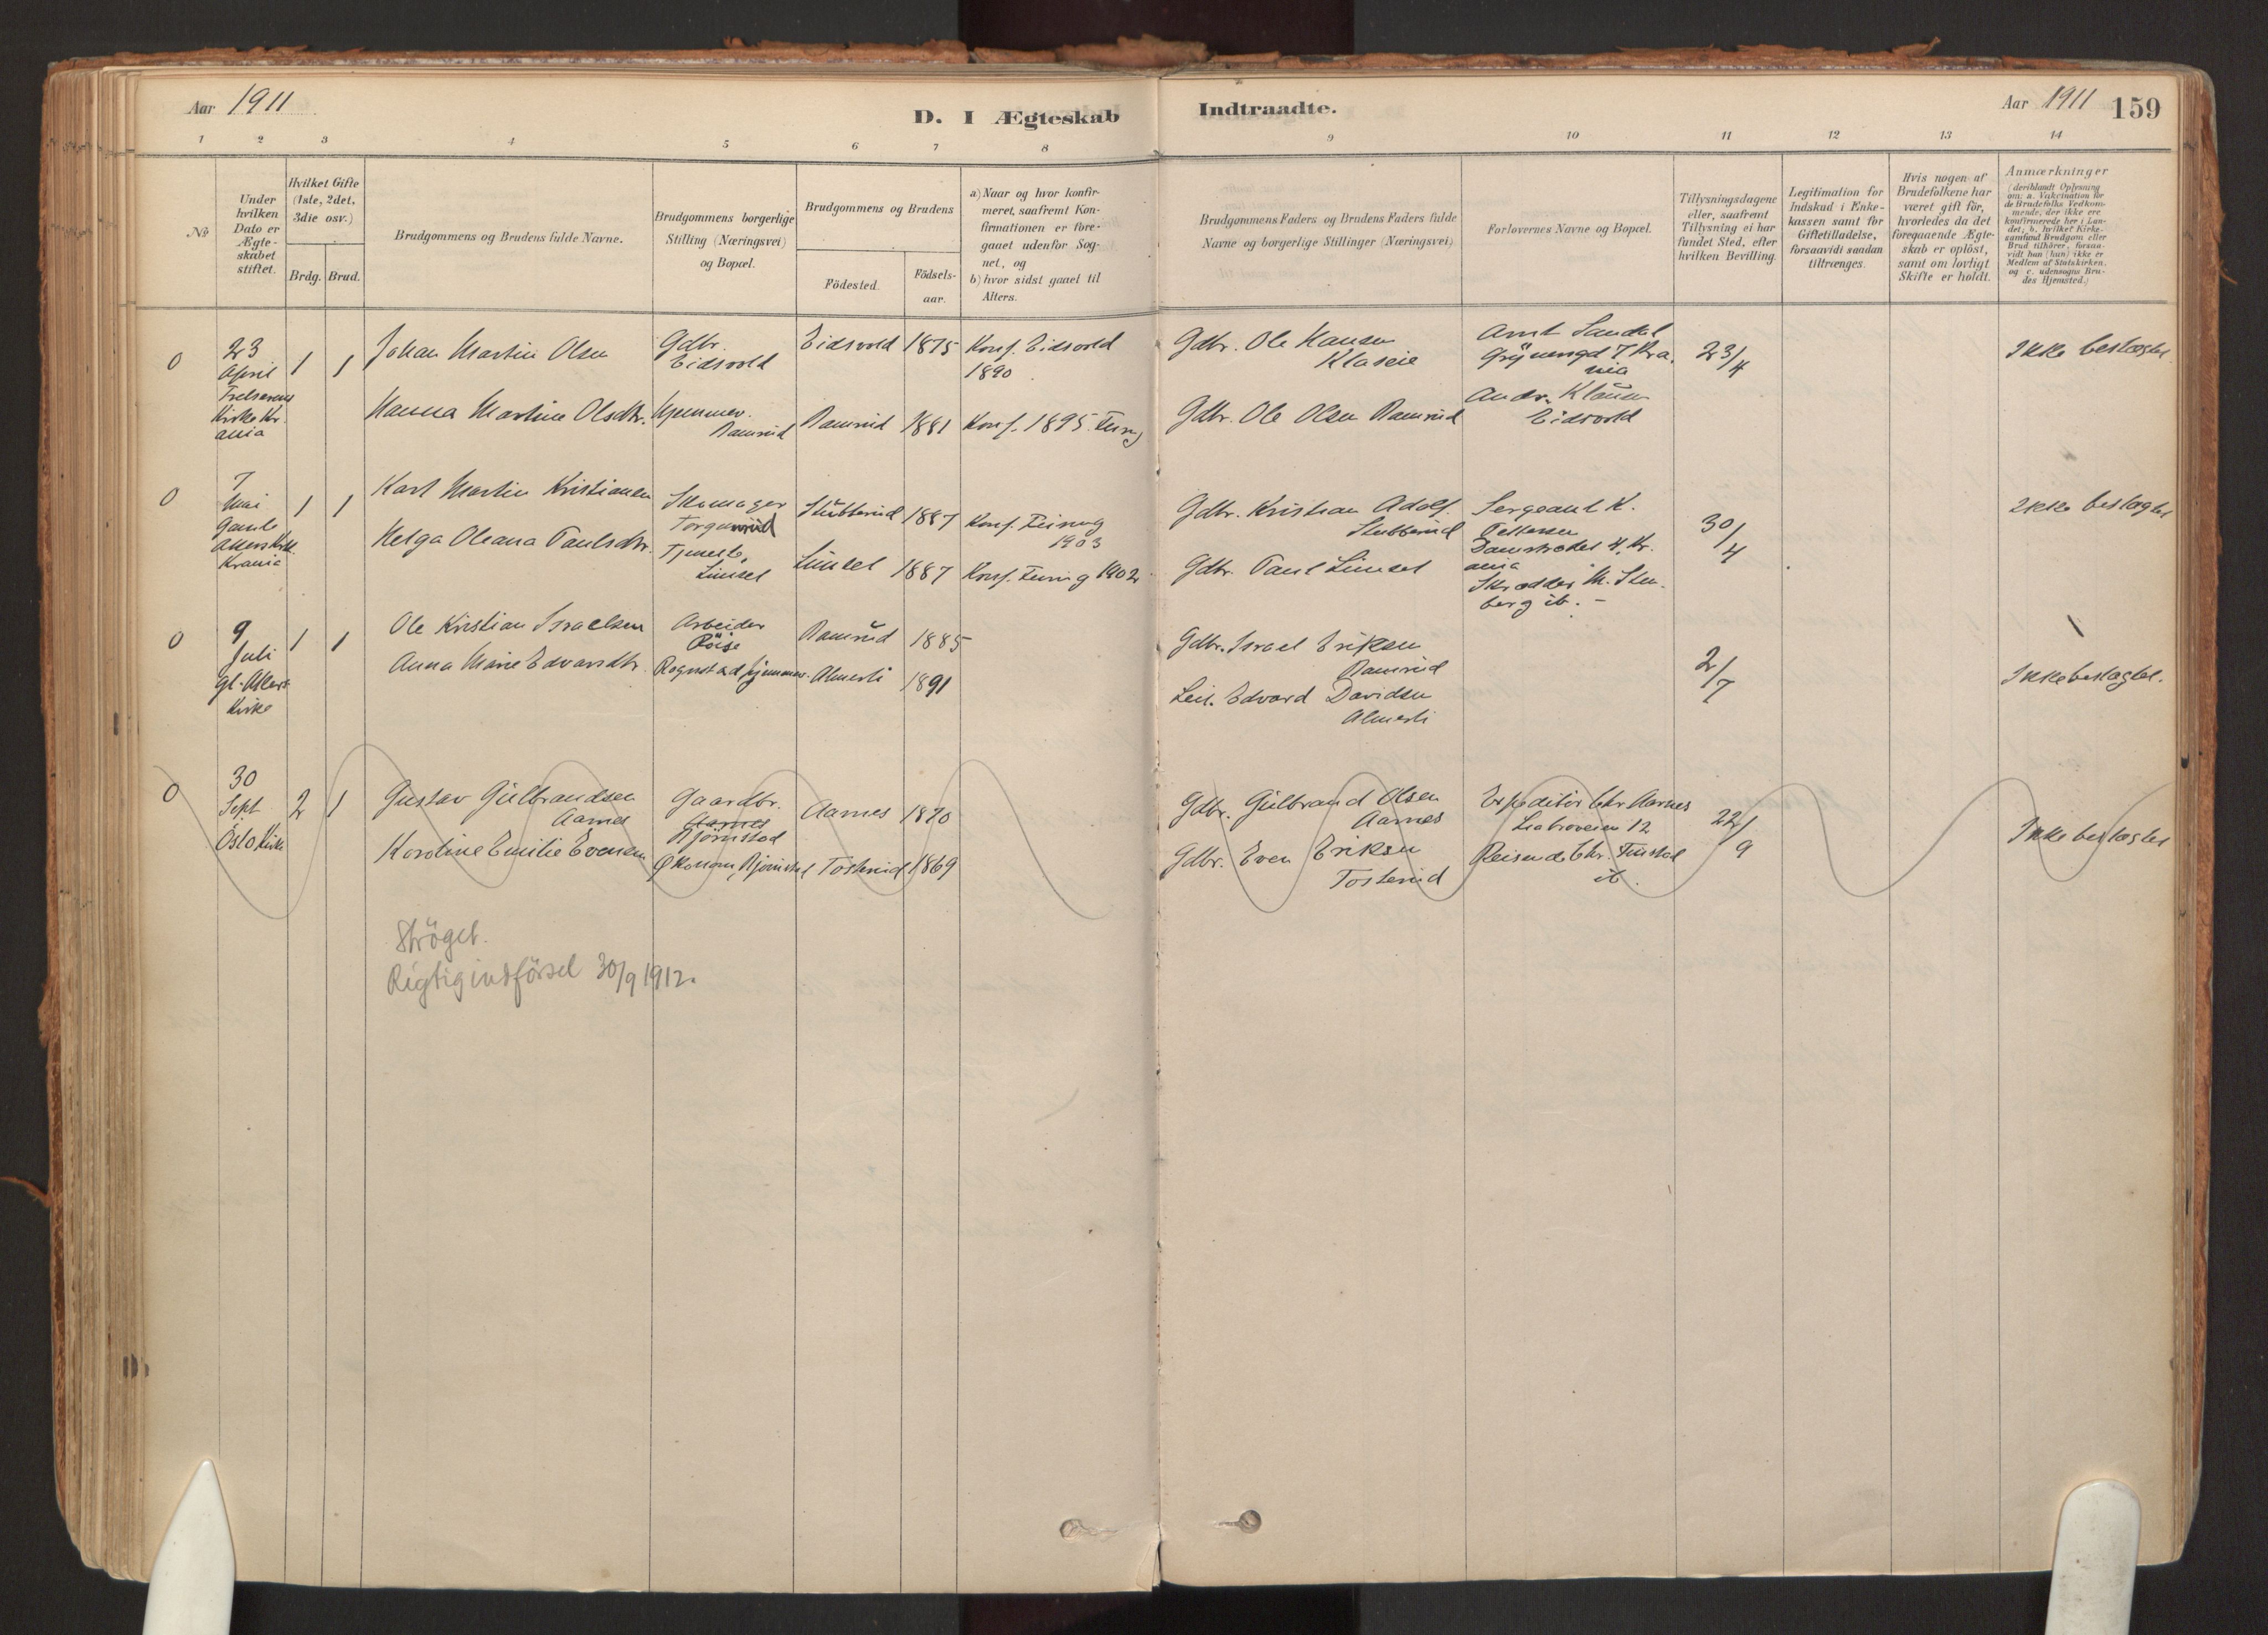 Aar 1911
D. I Ægteskab
Indtraadte.
Aar 1911 159
1 2 3 4 5 6 7 8 9 10 11 12 13 14
No
Under
hvilken
Dato er
Ægte-
skabet
stiftet.
Hvilket Gifte
(1ste, 2det,
3die osv.)
Brdg. Brud.
Brudgommens og Brudens fulde Navne.
Brudgommens borgerlige
Stilling (Næringsvei)
og Bopæl.
Brudgommens og Brudens
Födested.
Födsels-
aar.
a) Naar og hvor konfir-
meret, saafremt Kon-
firmationen er fore-
gaaet udenfor Sog-
net, og
b) hvor sidst gaaet til
Alters.
Brudgommens Faders og Brudens Faders fulde
Navne og borgerlige Stillinger (Næringsvei)
Forlovernes Navne og Bopæl.
Tillysningsdagene
eller, saafremt
Tillysning ei har
fundet Sted, efter
hvilken Bevilling.
Legitimation for
Indskud i Enke-
kassen samt for
Giftetilladelse,
forsaavidt saadan
tiltrænges.
Hvis nogen af
Brudefolkene har
været gift för,
hvorledes da det
foregaaende Ægte-
skab er oplöst,
samt om lovligt
Skifte er holdt.
Anmærkninger
(deriblandt Oplysning
om: a. Vakcination for
de Brudefolks Vedkom-
mende, der ikke ere
konfirmerede her i Lan-
det; b. hvilket Kirke-
samfund Brudgom eller
Brud tilhører, forsaa-
vidt hun (han) ikke er
Medlem af Statskirken,
og c. udensogns Bru-
des Hjemsted.)
0
23
April
Frelserens
Kirke Kr.
ania
1 1
Johan Martin Olsen
Gdbr.
Eidsvold
Eidsvold 1875
Konf. Eidsvold
1890
Gdbr. Ole Hansen
Klaseie
Arnt Sandal
7 Kra.
nia
23/4
Ikke beslægtet
Hanna Martine Olsdtr.
Hjemmev.
Ramrud
Ramrud 1881
Konf. 1895
Gdbr. Ole Olsen Ramrud
Andr. Klausen
Eidsvold
0
7
Mai
Gamle
Akers Kirk.
Krania
1 1
Karl Martin Kristiansen
Skomager
Stubberud 1887
Konf. Feiring
1903
Gdbr. Kristian Adolf.
Stubberud
Sergeant K.
Pettersen
Damstrædet 4, Kr.
ania
30/4
Ikke beslægtet
Helga Oleana Paulsdtr.
Tjeneste,
Linsel 1887
Konf. Feiring 1902
Gdbr. Paul Linsel
Skrædder M. Sten-
berg ib. -
0
9
Juli
Gl. Akers
Kirke
1 1
Ole Kristian Israelsen
Arbeider
Röise
Ramrud 1885
Gdbr. Israel Eriksen
Ramrud
2/7
Ikke beslægtet.
Anna Marie Edvardtr.
Rognstad, hjemmev.
Almerli 1891
Leil. Edvard Davidsen
Almerli
0
30
Sept
Oslo Kirk
2 1
Gustav Gulbrandsen
Aarnes
Gaardbr.
Aarnes
Bjørnstad
Aarnes 1870
Gdbr. Gulbrand Olsen
Aarnes
Expeditör Chr. Aarnes
12
22/9
Ikke beslægtet
Karoline Emilie Evensen
Økonom, Bjørnstad
Tosterud 1869
Gdbr. Even Eriksen
Tosterud
Reisende Chr. Finstad
ib.
Ströget.
Rigtig indförsel 30/9 1912.